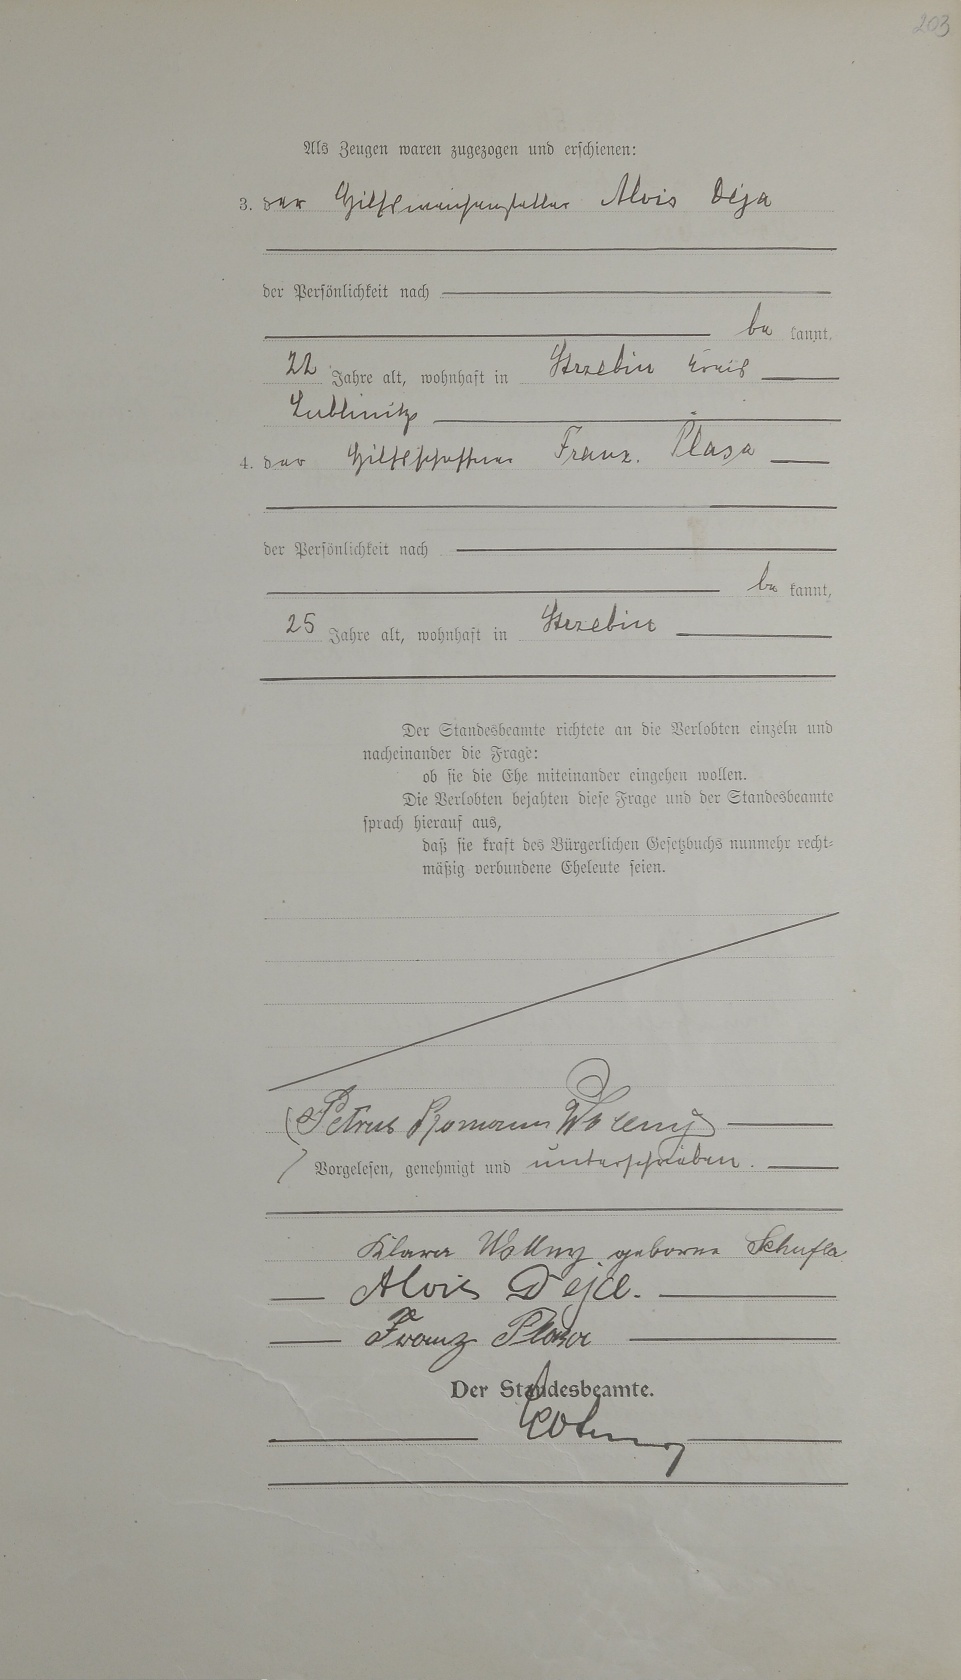 203
Als Zeugen waren zugezogen und erschienen:
3. der Hilfsweichensteller Alois Deja
der Persönlichkeit nach
be kannt,
22 Jahre alt, wohnhaft in Strzebin Kreis
Lublinitz
4. der Hilfsschaffner Franz Plasa
der Persönlichkeit nach
be kannt,
25 Jahre alt, wohnhaft in Strzebin
Der Standesbeamte richtete an die Verlobten einzeln und
nacheinander die Frage:
ob sie die Ehe miteinander eingehen wollen.
Die Verlobten bejahten diese Frage und der Standesbeamte
sprach hierauf aus,
daß sie kraft des Bürgerlichen Gesetzbuchs nunmehr recht-
mäßig verbundene Eheleute seien.
Petrus Romanus
Vorgelesen, genehmigt und unterschrieben.
Klara Wollny geborne Schufla
Alois Deja.
Franz Plasa
Der Standesbeamte.